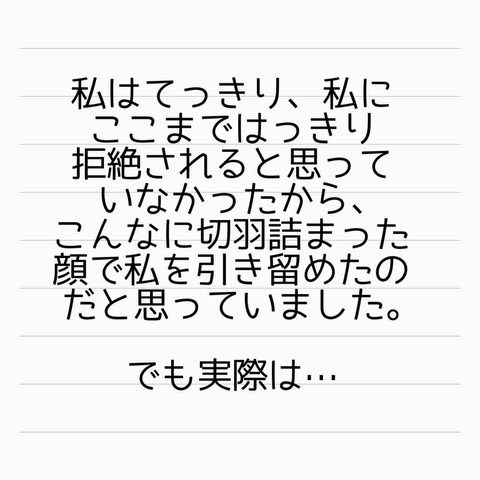 私はてっきり、私に
ここまではっきり
拒絶されると思って
いなかったから、
こんなに切羽詰まった
顔で私を引き留めたの
だと思っていました。
でも実際は…